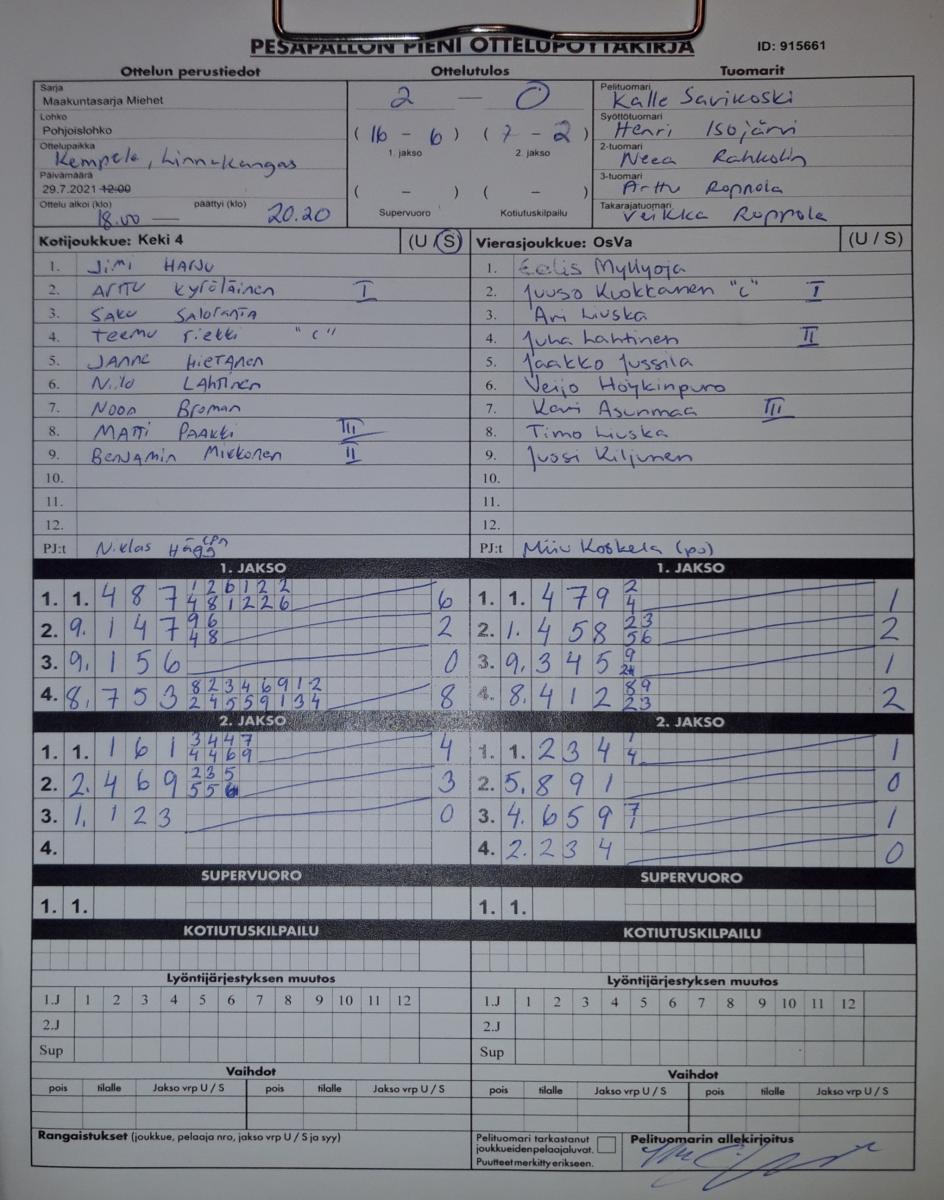 PESÄPALLON PIENI OTTELUPÖYTÄKIRJA
ID: 915661
Ottelun perustiedot
Ottelutulos
Tuomarit
Sarja
Maakuntasarja Miehet
Lohko
Pohjoislohko
Ottelupaikka
Kempele, Linnakangas
Päivämäärä
29.7.2021 12:00
Ottelu alkoi (klo) päättyi (klo)
18.00 — 20.20
2 — 0
(16 - 6) (7 - 2)
1. jakso 2. jakso
( - ) ( - )
Supervuoro Kotiutuskilpailu
Pelituomari
Kalle Savikoski
Syöttötuomari
Henri Isojärvi
2-tuomari
Neea Rahkolin
3-tuomari
Arttu Roppola
Takarajatuomari
Veikka Roppola
Kotijoukkue: Keki 4 (U / S)
1. Jimi HARJU
2. Arttu Kyröläinen I
3. SAKU SALORANTA
4. Teemu Piekki "C"
5. JANNE HIETANEN
6. Niilo LAHTINEN
7. Noon Broman
8. MATTI PAAKKI III
9. BENJAMIN Mikkonen II
10.
11.
12.
PJ:t Niklas Hägg
Vierasjoukkue: OsVa (U / S)
1. Eelis Myllyoja
2. Juuso Kuokkanen "c" I
3. Ari Liuska
4. Juha Lahtinen II
5. Jaakko Jussila
6. Veijo Höykinpuro
7. Kari Asunmaa III
8. Timo Liuska
9. Jussi Kiljunen
10.
11.
12.
PJ:t Miiu Koskela (pj)
1. JAKSO
1. 1. 4 8 7 1 2 6 1 2 2 6
4 8 1 2 2 6
2. 9. 1 4 7 9 6 2
4 8
3. 9. 1 5 6 0
4. 8. 7 5 3 8 2 3 4 6 9 1 2 8
2 4 5 5 9 1 3 4
1. JAKSO
1. 1. 4 7 9 2 1
4
2. 1. 4 5 8 2 3 2
5 6
3. 9. 3 4 5 9 1
4. 8. 4 1 2 8 9 2
2 3
2. JAKSO
1. 1. 1 6 1 3 4 4 7 4
4 4 6 9
2. 2. 4 6 9 2 3 5 3
5 5 6
3. 1. 1 2 3 0
4.
2. JAKSO
1. 1. 2 3 4 1 1
4
2. 5. 8 9 1 0
3. 4. 6 5 9 7 1
1
4. 2. 2 3 4 0
SUPERVUORO
1. 1.
SUPERVUORO
1. 1.
KOTIUTUSKILPAILU
KOTIUTUSKILPAILU
Lyöntijärjestyksen muutos
1.J 1 2 3 4 5 6 7 8 9 10 11 12
2.J
Sup
Lyöntijärjestyksen muutos
1.J 1 2 3 4 5 6 7 8 9 10 11 12
2.J
Sup
Vaihdot
pois tilalle Jakso vrp U / S pois tilalle Jakso vrp U / S
Vaihdot
pois tilalle Jakso vrp U / S pois tilalle Jakso vrp U / S
Rangaistukset (joukkue, pelaaja nro, jakso vrp U / S ja syy)
Pelituomari tarkastanut
joukkueiden pelaajaluvat.
Puutteet merkitty erikseen.
Pelituomarin allekirjoitus